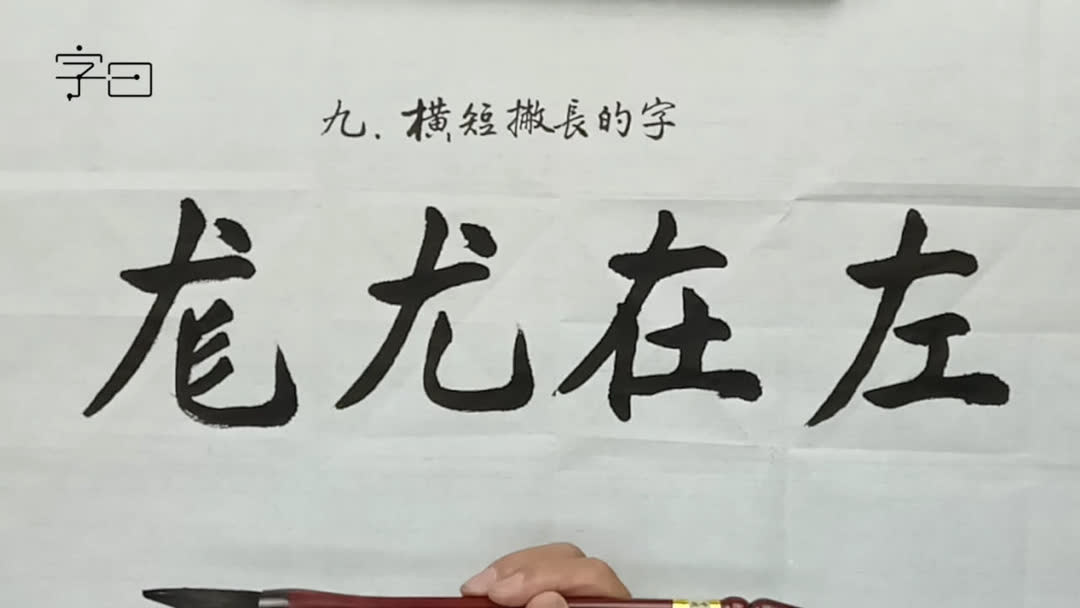 字曰
九、横短撇長的字
尨尤在左